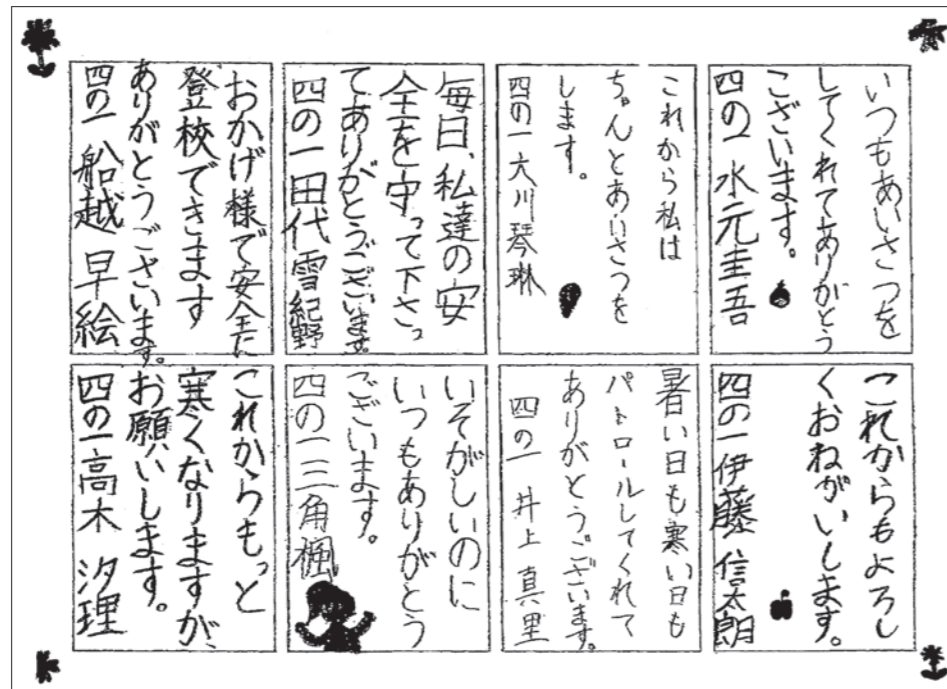 いつもあいさつを
してくれてありがとう
ございます。
四の一 水元圭吾
これから私は
ちゃんとあいさつを
します。
四の一 大川琴琳
毎日、私達の安
全を守って下さっ
てありがとうございます。
四の一 田代雪紀野
おかげ様で安全に
登校できます
ありがとうございます。
四の一 船越 早絵
これからもよろし
くおねがいします。
四の一 伊藤 信太朗
暑い日も寒い日も
パトロールしてくれて
ありがとうございます。
四の一 井上 真里
いそがしいのに
いつもありがとう
ございます。
四の一 三角楓
これからもっと
寒くなりますが、
お願いします。
四の一 高木 汐理